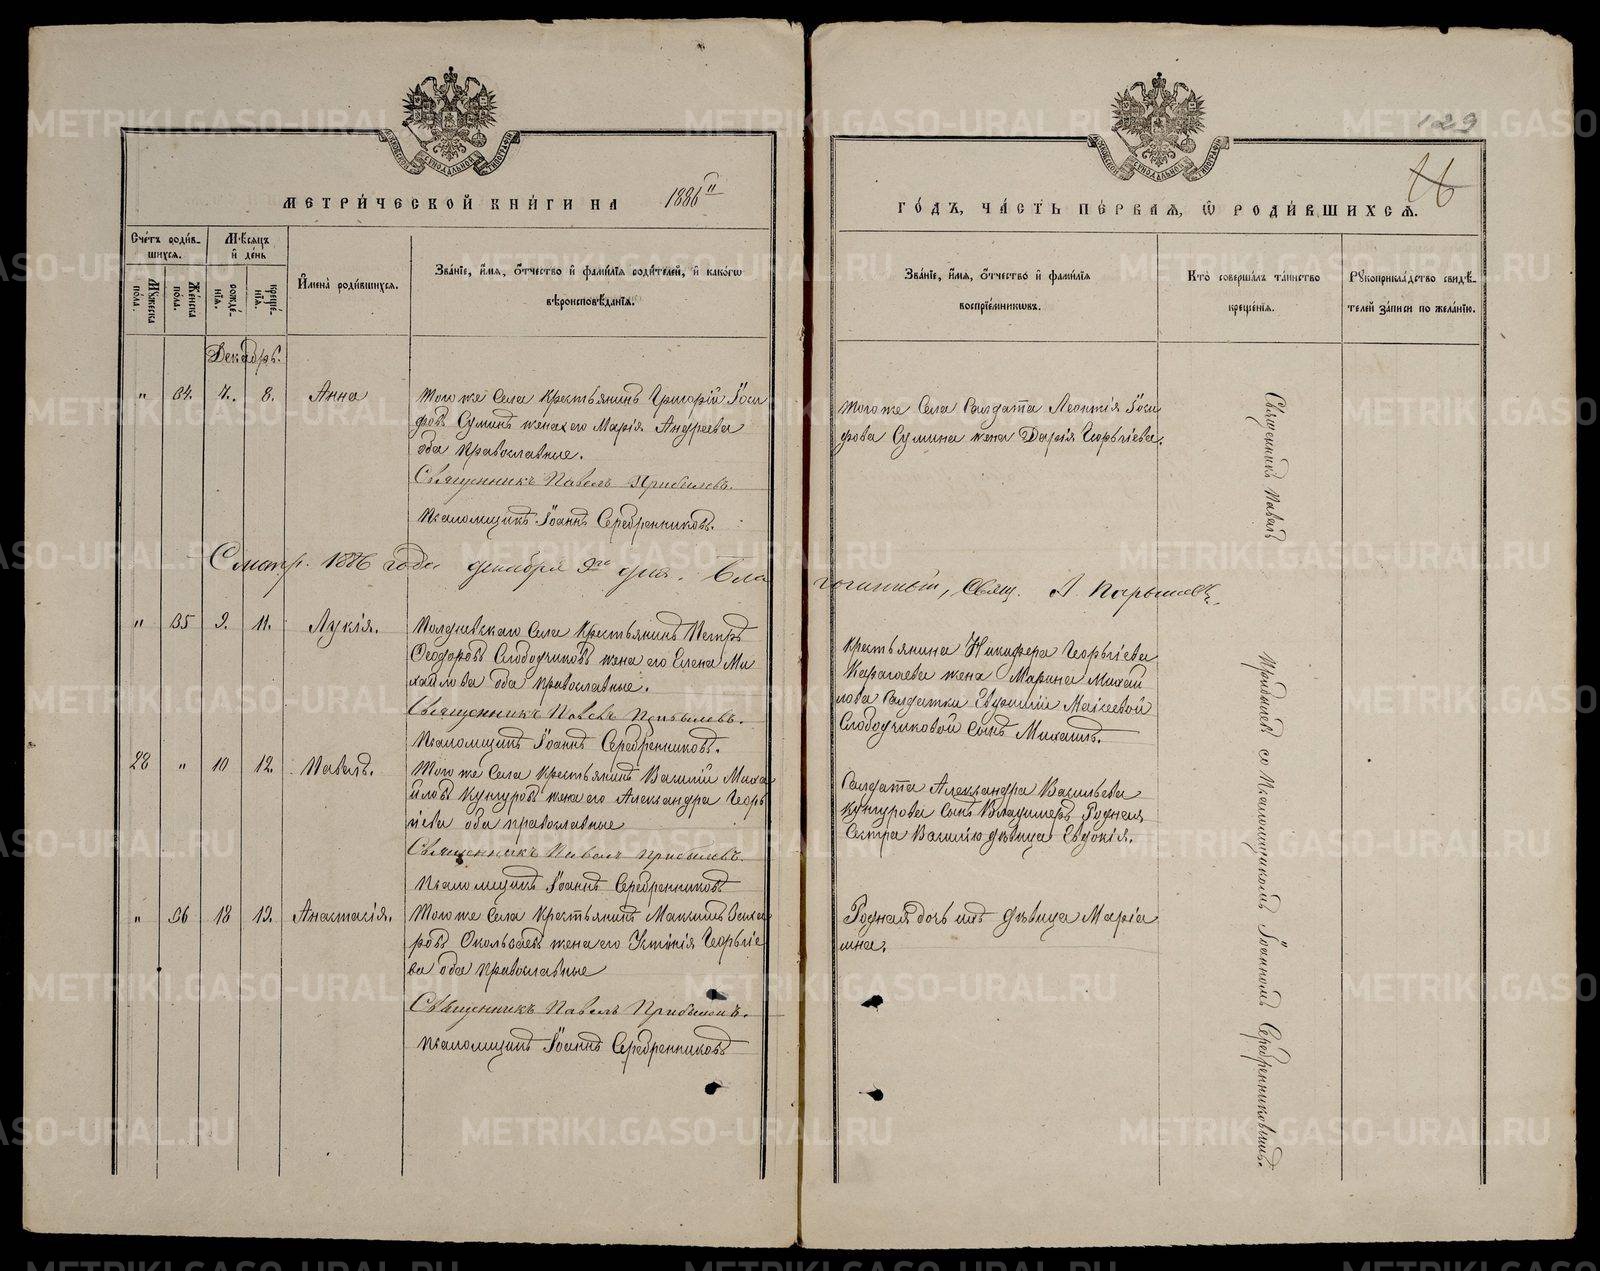 129
16
МЕТРИ́ЧЕСКОЙ КНИ́ГИ НА 1886 ГО́ДЪ, ЧА́СТЬ ПЕ́РВАЯ, Ѿ РОДИ́ВШИХСѦ.
Сче́тъ роди́в-
шихсѧ.
Мѣ́сѧцъ
и҆ де́нь
Мꙋжеска пола.
Же́нска пола.
рожде́-
нїѧ.
креще́-
нїѧ.
И҆мена̀ роди́вшихсѧ.
Зва́нїе, и҆́мѧ, ѻ҆́тчество и҆ фами́лїѧ роди́телей, и҆ како́гѡ
вѣроисповѣ́данїѧ.
Зва́нїе, и҆́мѧ, ѻ҆́тчество и҆ фами́лїѧ
воспрїе́мникѡвъ.
Кто̀ соверша́лъ та́инство
креще́нїѧ.
Рꙋкоприкла́дство свидѣ́-
телей за́писи по жела́нїю.
Декабрь.
" 34. 7. 8. Анна
Того же Села Крестьянинъ Григорій Іоси
фовъ Суминъ жена его Марія Андреева
оба Православные.
Священникъ Павелъ Прибылевъ.
Псаломщикъ Іоаннъ Серебренниковъ.
Того же Села Солдата Леонтія Іоси
фова Сумина жена Дарія Георгіева.
Смотр. 1886 года декабря 9го дня. Благочинный, Свящ. А Парышевъ.
" 35 9. 11. Лукія.
Полдневскаго Села Крестьянинъ Петръ
Ѳеодоровъ Слободчиковъ жена его Елена Ми
хайлова оба православные.
Священникъ Павелъ Прибылевъ.
Псаломщикъ Іоаннъ Серебренниковъ.
Крестьянина Никифора Георгіева
Карагаева жена Марина Михай
лова Солдатки Евфиміи Моісеевой
Слободчиковой сынъ Михаилъ.
28 " 10 12. Павелъ.
Того же Села Крестьянинъ Василій Миха
йловъ Кунгуровъ жена его Александра Георг
іева оба православные
Священникъ Павелъ Прибылевъ.
Псаломщикъ Іоаннъ Серебренниковъ
Солдата Александра Васильева
Кунгурова сынъ Владимеръ Родная
Сестра Василію дѣвица Евдокія.
" 36 18 19. Анастасія.
Того же Села Крестьянинъ Максимъ
ровъ жена его Устинія Георгіе
ва оба православные
Священникъ Павелъ Прибылевъ.
Псаломщикъ Іоаннъ Серебренниковъ
Родная дочь ихъ дѣвица Маріа
мна.
Священникъ Павелъ Прибылевъ со Псаломщикомъ Іоанномъ Серебренниковымъ.
METRIKI.GASO-URAL.RU